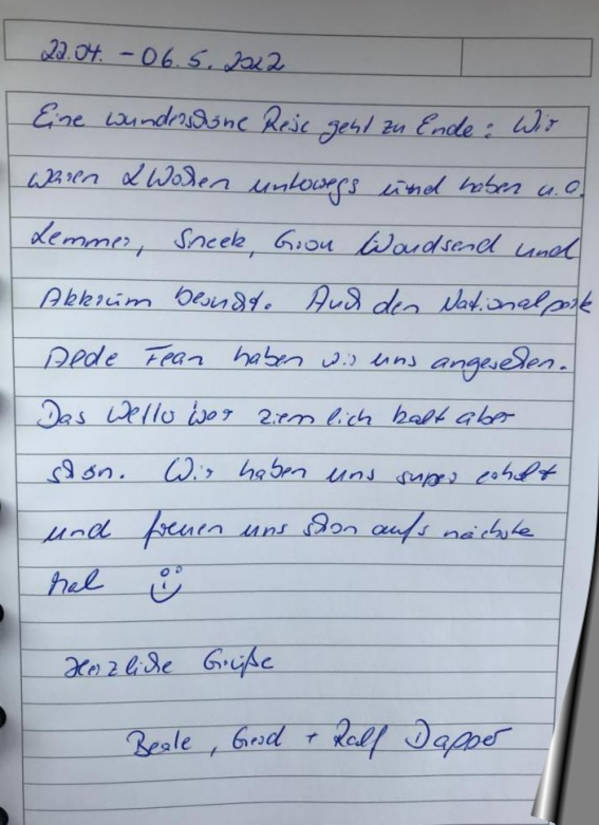 22.04. - 06.5. 2022
Eine wunderschöne Reise geht zu Ende: Wir
waren 2 Wochen unterwegs und haben u.a.
Lemmer, Sneek, Grou Woudsend und
Akkrum besucht. Auch den Nationalpark
Alde Fean haben wir uns angesehen.
Das Wetter war ziemlich kalt aber
schön. Wir haben uns super erholt
und freuen uns schon aufs nächste
Mal
Herzliche Grüße
Beate, Gerd + Ralf Dapper